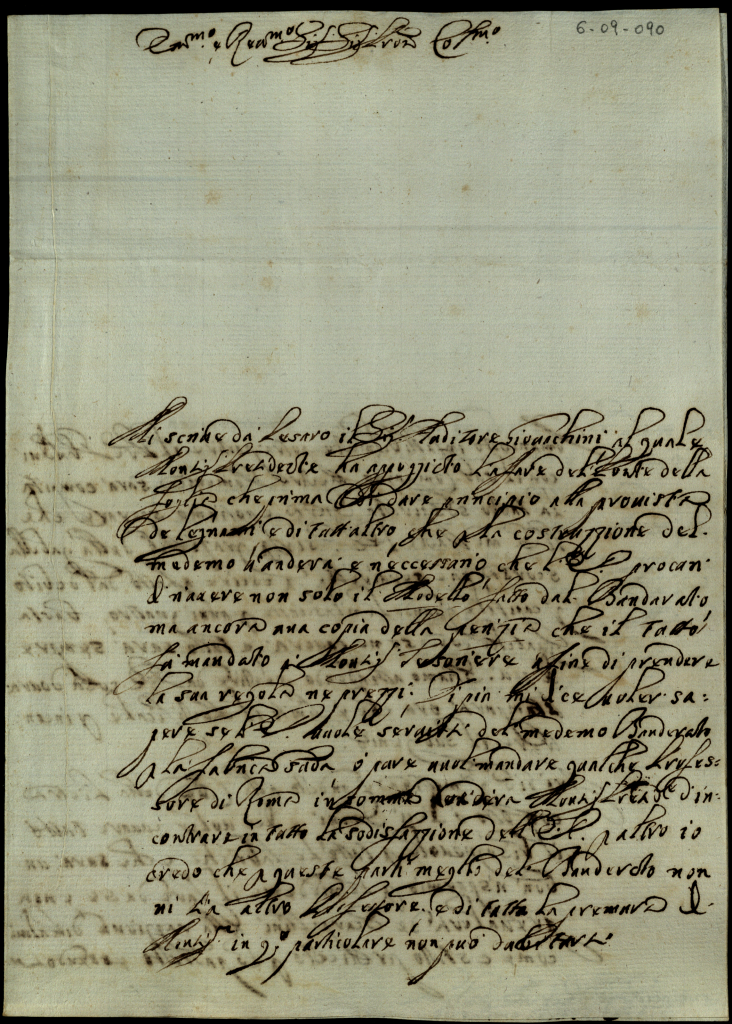 6-09-090
Emo. e Remo. Sig. Sig. Pron Colmo.
Mi scriue da Pesaro il Sig. Auditore Giouachini al quale
Monsig. Presidente ha appoggiato l'affare del Ponte della
Foglia che prima di dare principio alla prouista
de legnami e di tutt'altro che p la costruzzione del
medemo u'anderà è neccessario che l'E. V. procuri
d'hauere non solo il Modello fatto dal Bandarato
ma ancora una copia della perizia che il
mandato a Monsig. Tesoriere a fine di prendere
la sua regola ne prezzi. Di più mi dice uoler sa:
pere se l'E. V. uuole seruirsi del medemo Banderato
p la fabrica o pure uuol mandare qualche Profes:
sore di Roma in somma Monsig. Presid.te d'in:
contrare in tutto la sodisfazzione dell'E. V. p altro io
credo che p queste parti meglio del Banderato non
ui sia altro Professore e di tutta la premura di
Monsig. in q.o particolare non può dubitarsi